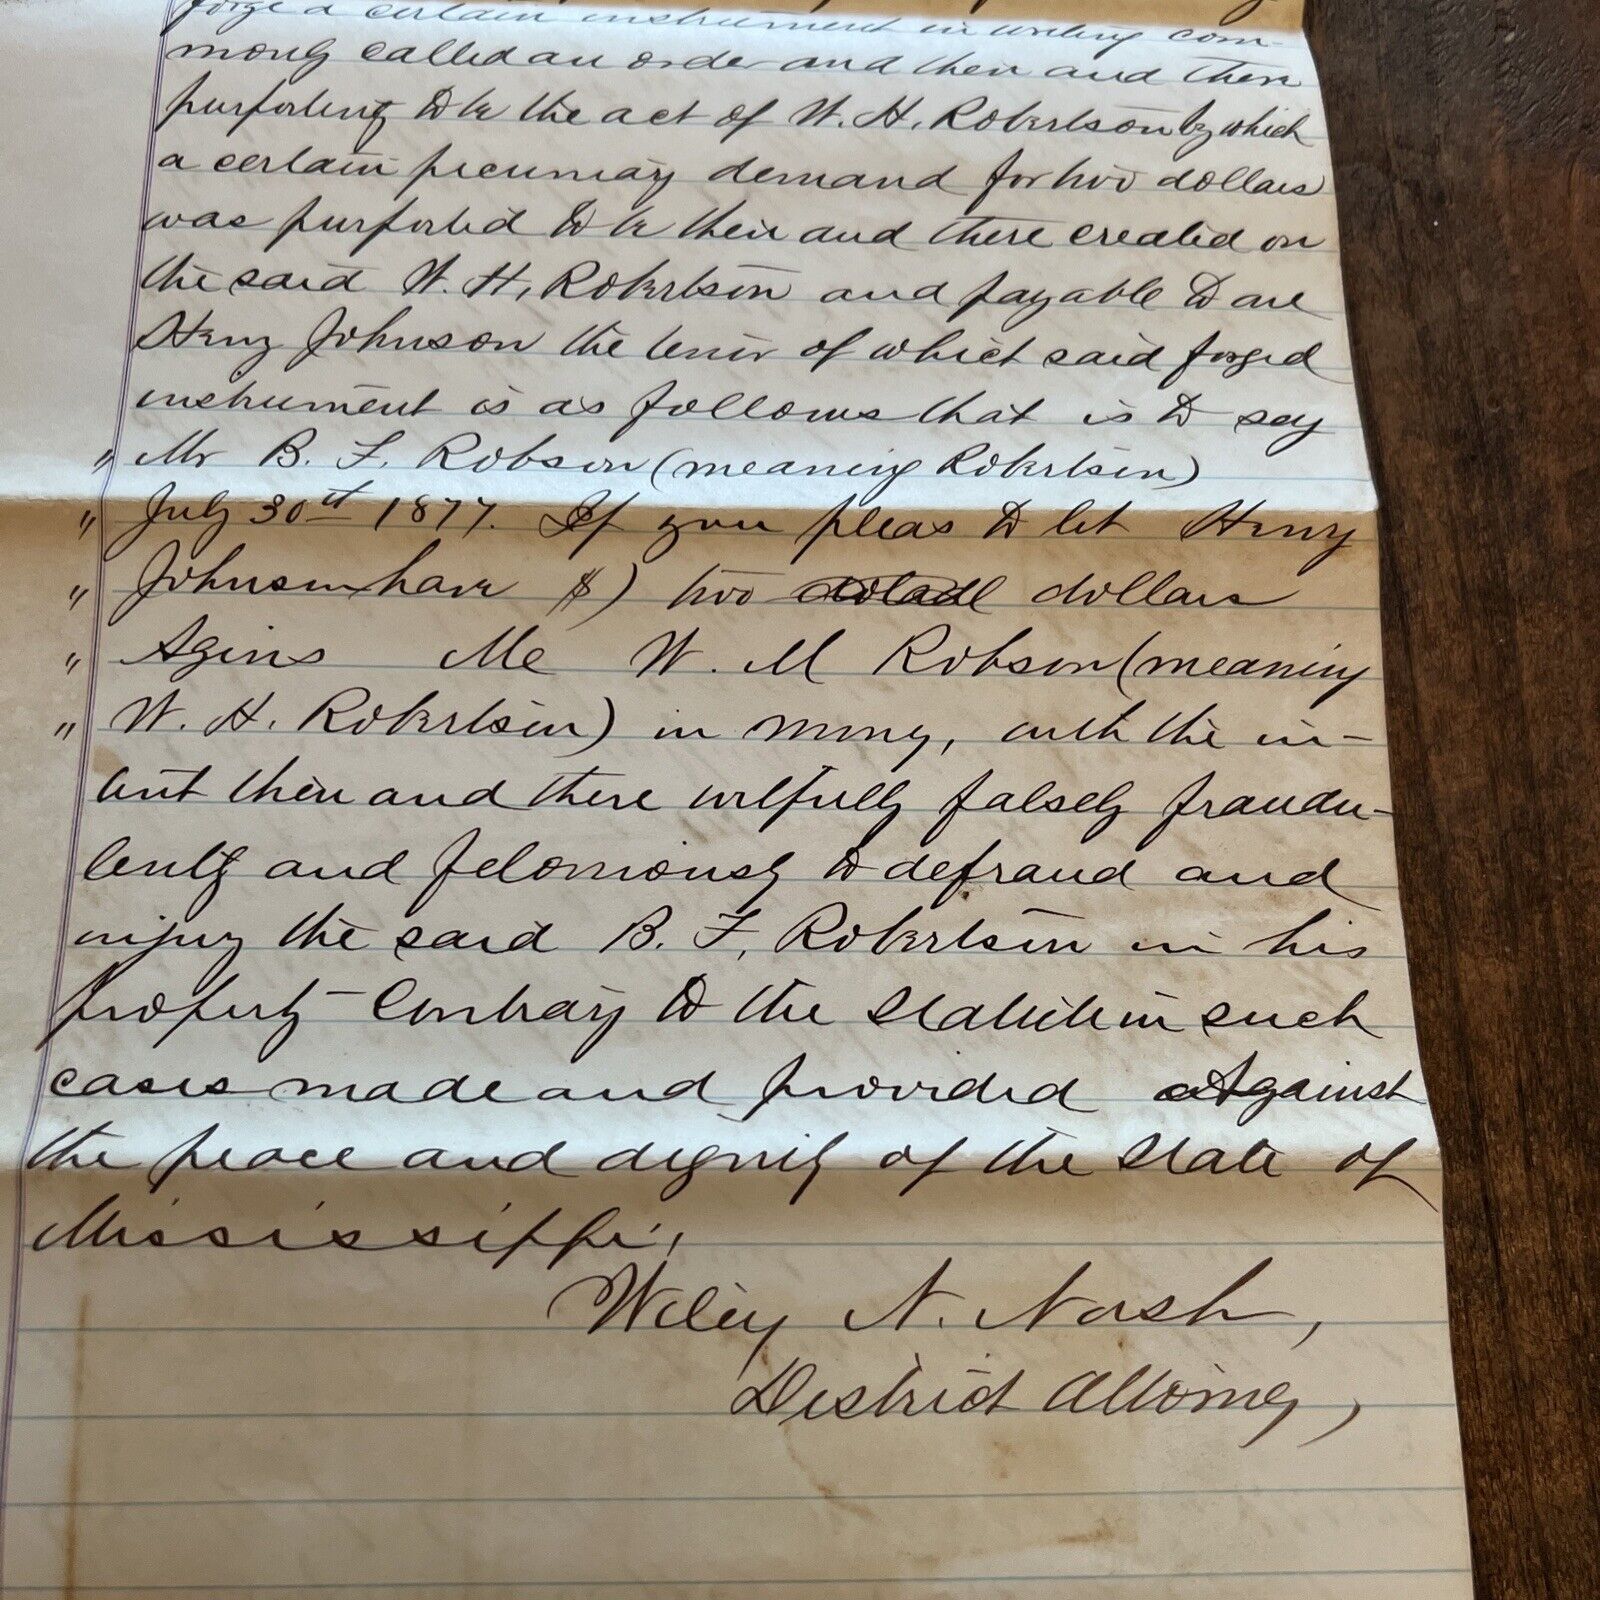 forge a certain instrument in writing com-
monly called an order and then and there
purporting to be the act of W. H. Robertson by which
a certain pecuniary demand for two dollars
was purported to be then and there created on
the said W. H. Robertson and payable to one
Henry Johnson the tenor of which said forged
instrument is as follows that is to say
" Mr B. F. Robson (meaning Robertson)
" July 30st 1877. If you pleas to let Henry
" Johnson have $) two dollars
" Agins Me W. M Robson (meaning
" W. H. Robertson) in money, with the in-
tent then and there wilfully falsely fraudu-
lently and feloniously to defraud and
injury the said B. F. Robertson in his
property - Contrary to the statute in such
cases made and provided Against
the peace and dignity of the State of
Mississippi,
Wiley N. Nash,
District Attorney,